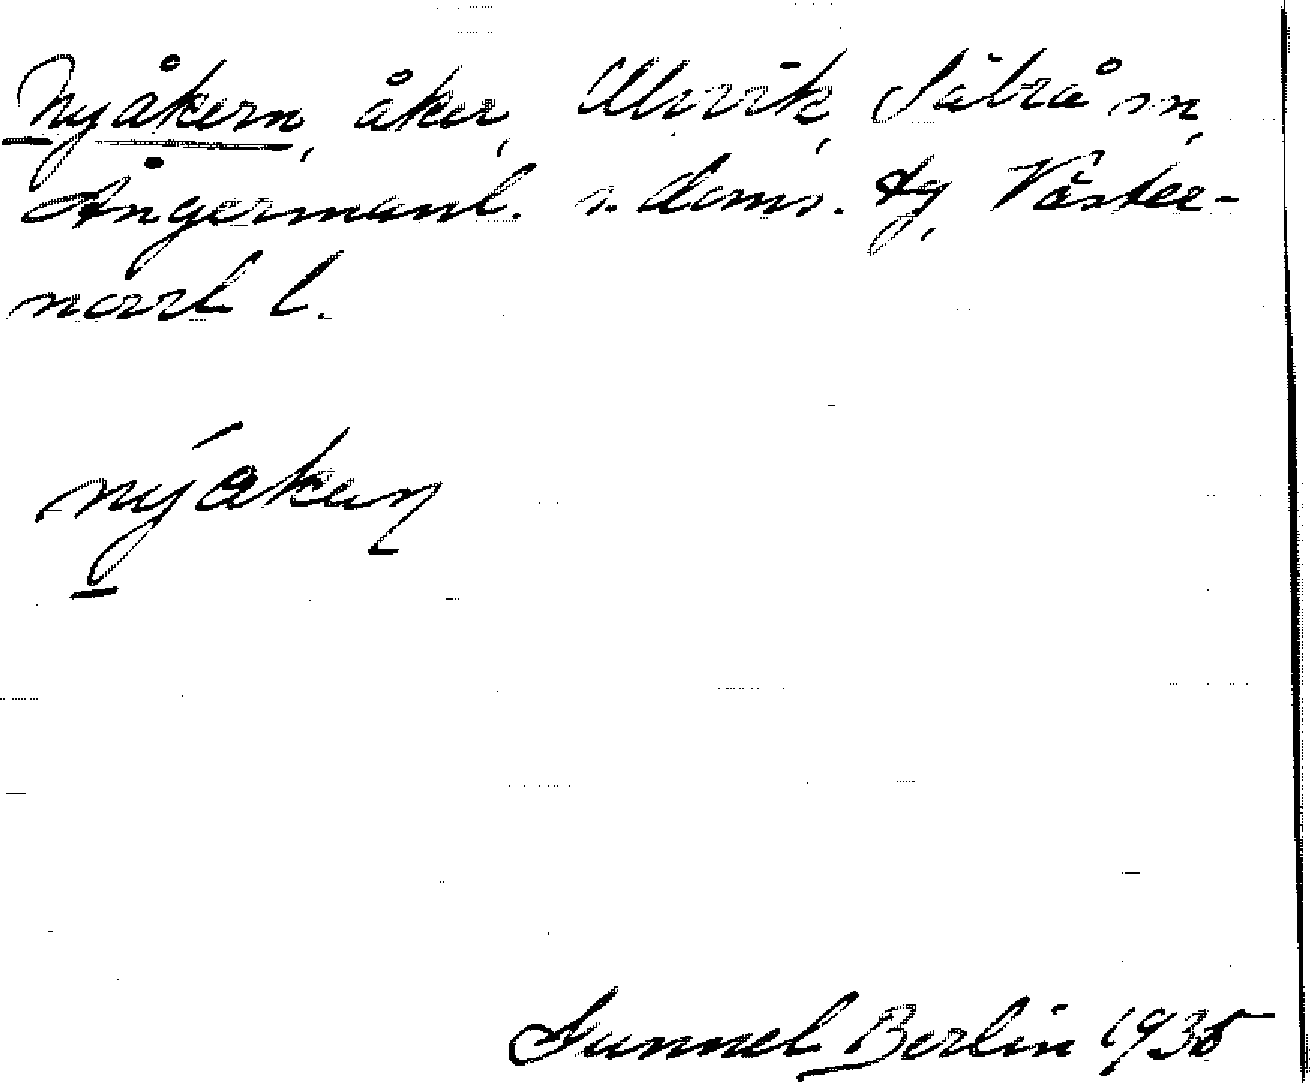 Nyåkern, åker, Ulvvik, Säbrå sn,
Ångermanl. s. doms. tg, Väster-
norrl. l.
nýåkeɳ
Gunnel Berlin 1935